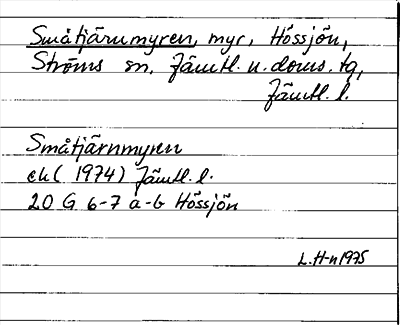 Småtjärnmyren, myr, Hössjön,
Ströms sn. Jämtl. n. doms. tg,
Jämtl. l.
Småtjärnmyren
ek (1974) Jämtl. l.
20 G 6-7 a-b Hössjön
L. H-n 1975